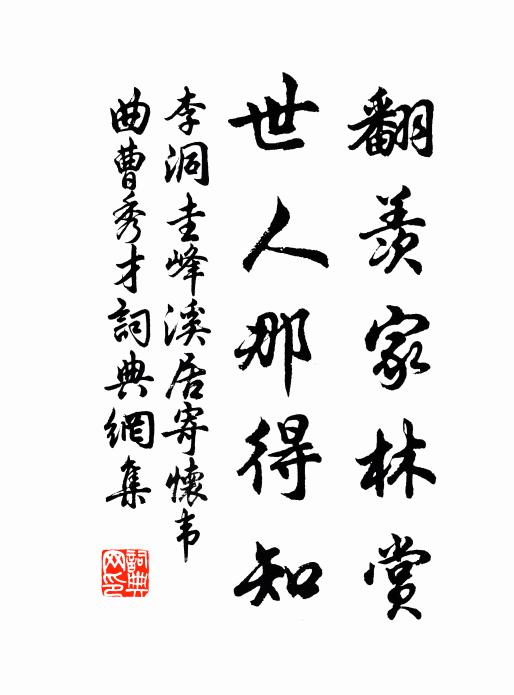 翻羨家林賞
世人那得知
李洞圭峰溪居寄懷韦
曲曹秀才詞典網集
詞典网印